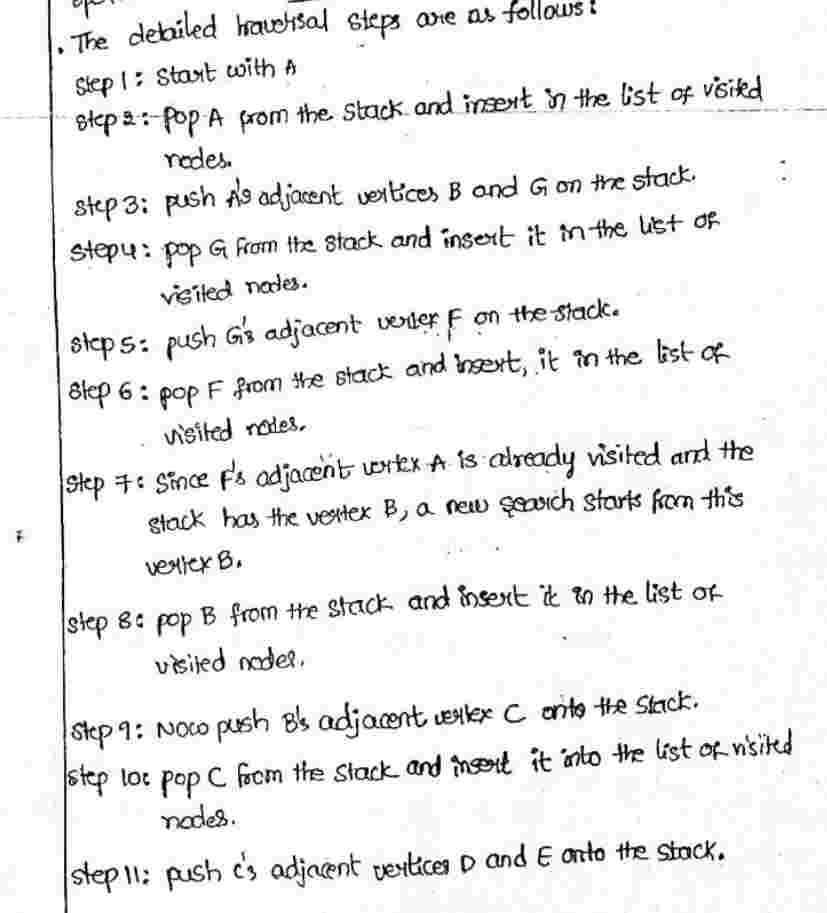 . The detailed traversal steps are as follows:
step 1: start with A
step 2:- pop A from the stack and insert in the list of visited
nodes.
step 3: push A's adjacent vertices B and G on the stack.
step 4: pop G from the stack and insert it in the list of
visited nodes.
step 5: push G's adjacent vertex F on the stack.
step 6: pop F from the stack and insert, it in the list of
visited nodes.
step 7: since F's adjacent vertex A is already visited and the
stack has the vertex B, a new search starts from this
vertex B.
step 8: pop B from the stack and insert it in the list of
visited nodes.
step 9: Now push B's adjacent vertex C onto the stack.
step 10: pop C from the stack and insert it into the list of visited
nodes.
step 11: push c's adjacent vertices D and E onto the stack.